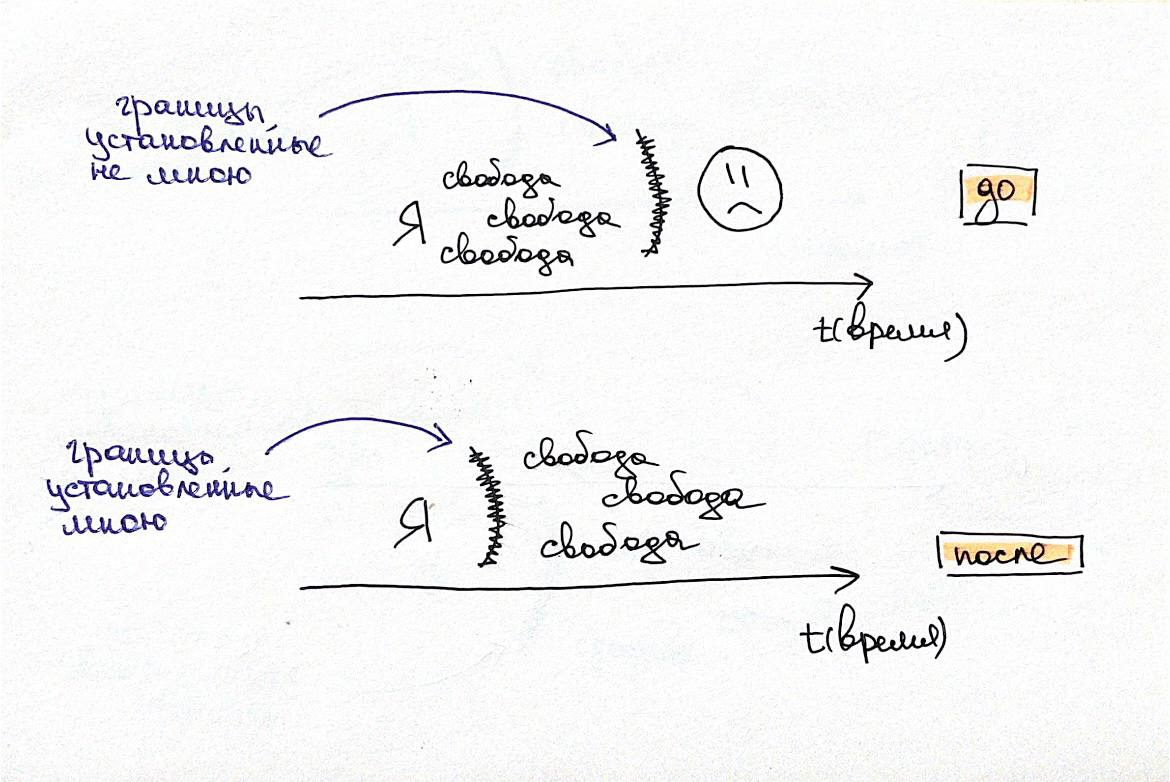 границы,
установленные
не мною
свобода
Я свобода
свобода
до
t(время)
границы,
установленные
мною
свобода
свобода
Я
свобода
после
t(время)